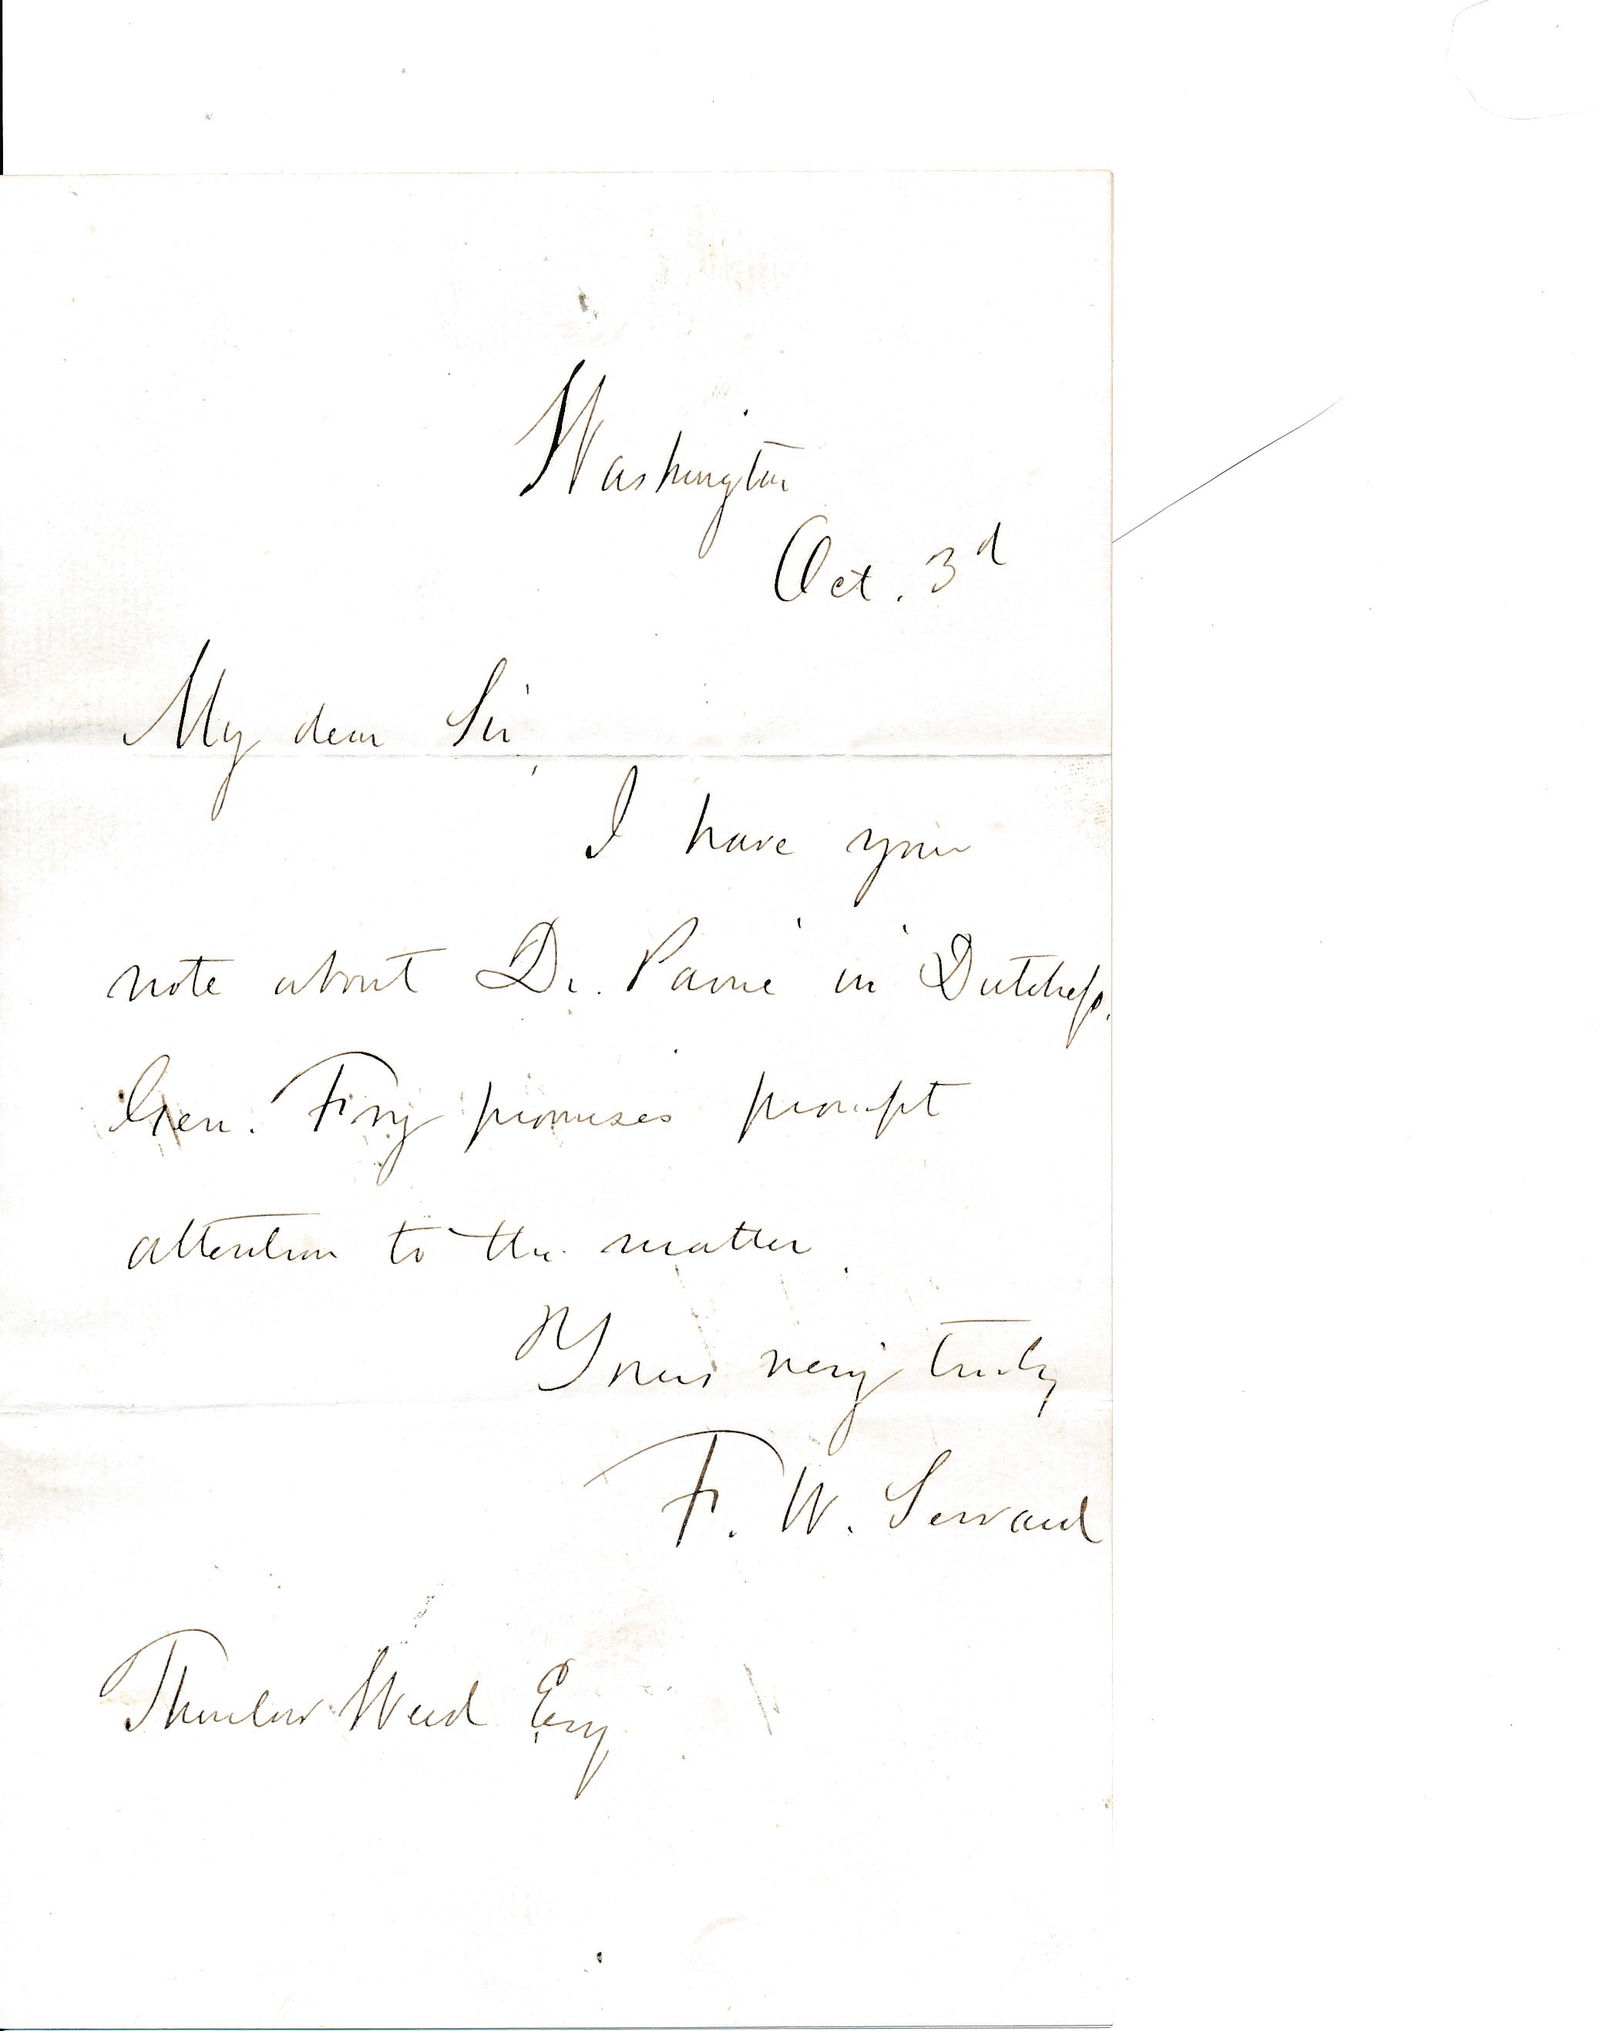 Washington
Oct. 3d
My dear Sir,
I have your
note about Dr. Paine in Dutchess.
Gen. Fry promises prompt
attention to the matter.
Yours very truly
F. W. Seward
Thurlow Weed Esq